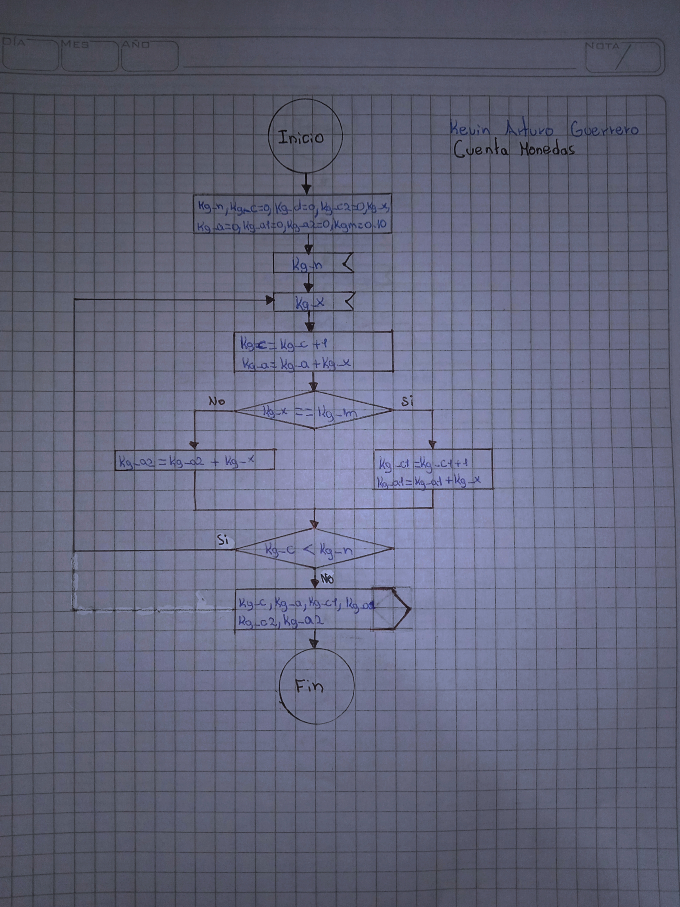 DÍA MES AÑO NOTA
Kevin Arturo Guerrero
Cuenta Monedas
Inicio
Kg-n, Kg-c=0, Kg-d=0, Kg-c2=0, Kg-x,
Kg-a=0, Kg-a1=0, Kg-a2=0, Kgm=0.10
Kg-n
Kg-x
Kg-c=Kg-c+1
Kg-a=Kg-a+Kg-x
No Si
Kg-x == Kg-m
Kg-a2=Kg-a2 + Kg-x
Kg-c1=Kg-c1+1
Kg-a1=Kg-a1+Kg-x
Si
Kg-c < Kg-n
No
Kg-c, Kg-a, Kg-c1, Kg-a1
Kg-c2, Kg-a2
Fin